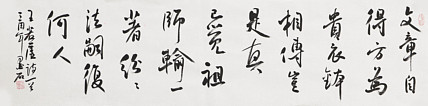 文章自
得方為
貴衣鉢
相傳豈
是真
已覺祖
師輸一
著紛々
法嗣復
何人
王若虛詩